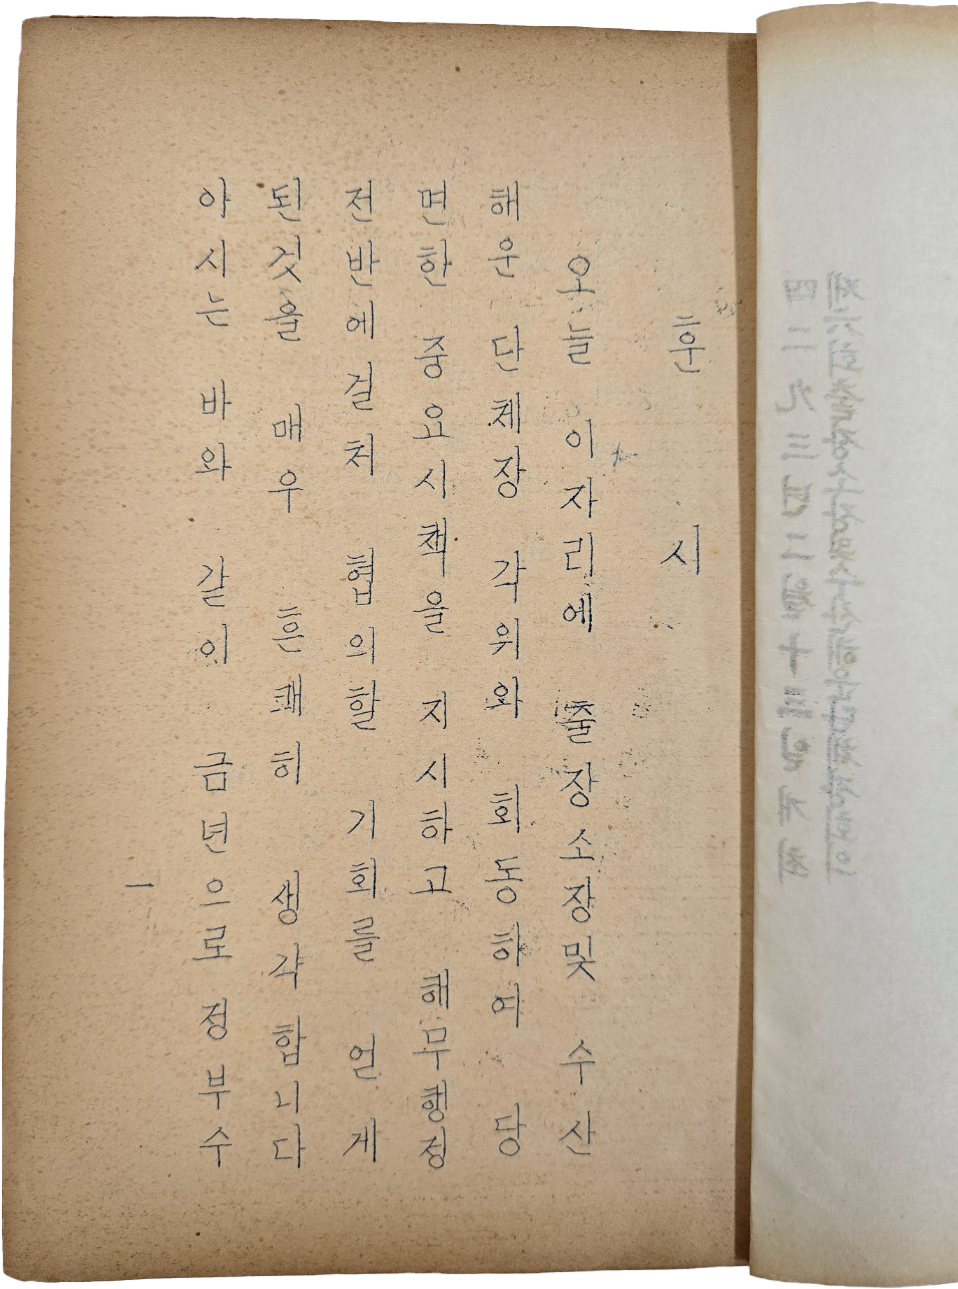 훈 시
오늘 이자리에 출장소장및 수산
해운 단체장 각위와 회동하여 당
면한 중요시책을 지시하고 해무행정
전반에걸처 협의할 기회를 얻게
된것을 매우 흔쾌히 생각합니다
아시는 바와 같이 금년으로 정부수
一